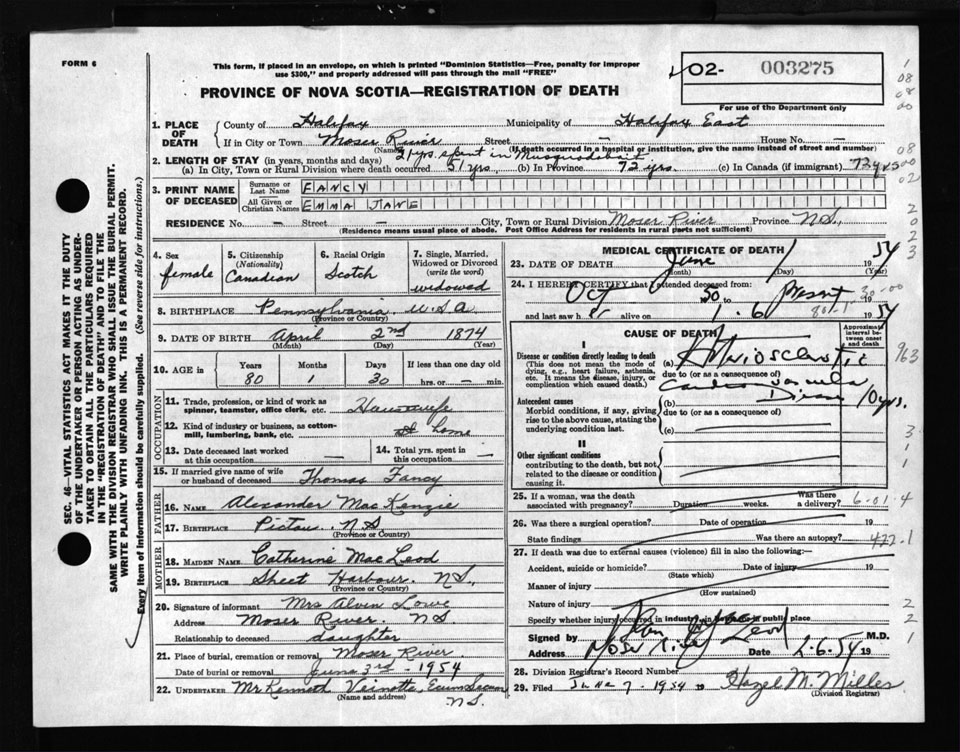 FORM 6
This form, if placed in an envelope, on which is printed "Dominion Statistics—Free, penalty for improper
use $300," and properly addressed will pass through the mail "FREE"
02- 003275
For use of the Department only
PROVINCE OF NOVA SCOTIA—REGISTRATION OF DEATH
1. PLACE OF DEATH
County of Halifax Municipality of Halifax East
If in City or Town Moser River Street — House No. —
(Name) (If death occurred in a hospital or institution, give the name instead of street and number)
21 yrs. spent in Musquodoboit
2. LENGTH OF STAY (in years, months and days)
(a) In City, Town or Rural Division where death occurred 51 yrs. (b) In Province 72 yrs. (c) In Canada (if immigrant) 72 yrs
3. PRINT NAME OF DECEASED
Surname or Last Name FANCY
All Given or Christian Names EMMA JANE
RESIDENCE No. — Street — City, Town or Rural Division Moser River Province N.S.,
(Residence means usual place of abode. Post Office Address for residents in rural parts not sufficient)
4. Sex female
5. Citizenship (Nationality) Canadian
6. Racial Origin Scotch
7. Single, Married, Widowed or Divorced (write the word) widowed
8. BIRTHPLACE Pennsylvania U.S.A
(Province or Country)
9. DATE OF BIRTH April 2nd 1874
(Month) (Day) (Year)
10. AGE in Years 80 Months 1 Days 30 If less than one day old hrs. or — min.
OCCUPATION
11. Trade, profession, or kind of work as spinner, teamster, office clerk, etc. Housewife
12. Kind of industry or business, as cotton-mill, lumbering, bank, etc. at home
13. Date deceased last worked at this occupation —
14. Total yrs. spent in this occupation —
15. If married give name of wife or husband of deceased Thomas Fancy
FATHER
16. NAME Alexander MacKenzie
17. BIRTHPLACE Pictou. N.S
(Province or Country)
MOTHER
18. MAIDEN NAME Catherine MacLeod
19. BIRTHPLACE Sheet Harbour. N.S.,
(Province or Country)
20. Signature of informant Mrs Alvin Lowe
Address Moser River. N.S
Relationship to deceased daughter
21. Place of burial, cremation or removal Moser River
Date of burial or removal June 3rd - 1954
22. UNDERTAKER Mr Kenneth Veinotte, Ecum Secum
(Name and address)
N.S.
MEDICAL CERTIFICATE OF DEATH
23. DATE OF DEATH June 1 1954
(Month) (Day) (Year)
24. I HEREBY CERTIFY that I attended deceased from:
Oct 50 to present 19
and last saw h alive on 1-6 1954
CAUSE OF DEATH
Approximate interval between onset and death
I
Disease or condition directly leading to death
(This does not mean the mode of dying, e.g., heart failure, asthenia, etc. It means the disease, injury, or complication which caused death.)
(a) Arteriosclerotic
due to (or as a consequence of)
Cardio Vascular
Antecedent causes
Morbid conditions, if any, giving rise to the above cause, stating the underlying condition last.
(b) Disease 10 yrs.
due to (or as a consequence of)
(c)
II
Other significant conditions
contributing to the death, but not related to the disease or condition causing it.
25. If a woman, was the death associated with pregnancy? Duration weeks. Was there a delivery?
26. Was there a surgical operation? Date of operation 19
State findings Was there an autopsy?
27. If death was due to external causes (violence) fill in also the following:—
Accident, suicide or homicide? Date of injury 19
(State which)
Manner of injury
(How sustained)
Nature of injury
Specify whether injury occurred in industry, in home or in public place
Signed by M.D.
Address Moser River Date 2-6-54 19
28. Division Registrar's Record Number
29. Filed June 7 - 1954 19 Hazel M. Miller
(Division Registrar)
SEC. 46—VITAL STATISTICS ACT MAKES IT THE DUTY
OF THE UNDERTAKER OR PERSON ACTING AS UNDER-
TAKER TO OBTAIN ALL THE PARTICULARS REQUIRED
IN THE "REGISTRATION OF DEATH" AND TO FILE THE
SAME WITH THE DIVISION REGISTRAR WHO SHALL ISSUE THE BURIAL PERMIT.
WRITE PLAINLY WITH UNFADING INK. THIS IS A PERMANENT RECORD.
Every item of information should be carefully supplied. (See reverse side for instructions.)
1
08
08
00
08
00
02
2
0
2
3
30-00
963
3
1
1
6-01-4
422-1
2
2
1